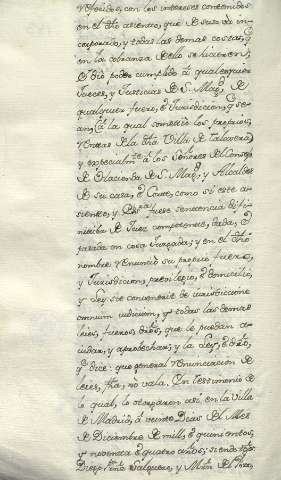 y feudos, con los intereses contenidos
en el dho asiento, que de suso va in-
corporado, y todas las demas costas, q
en la cobranza dello se hicieren;
è dio poder cumplido à qualesquier
Jueces, y Justicias de S. Mag.d de
qualquier fuero, è Jurisdiccion, q sе-
an, à la qual sometio los propios,
y rentas de la dha Villa de Talavera,
y especialm.te à los Señores del Consejo
de Hacienda de S. Mag.d y Alcaldes
de su casa, è Corte, como si este a-
siento, y fuese sentencia difi-
nitiva de Juez competente, dada, è
pasada en cosa Juzgada; y en el dho
nombre renunciò su propio fuero,
y Jurisdiccion, previlegio, è domicilio,
y Ley sit convenerit de iurisdictione
omnium iudicum, y todas las demas
leies, fueros, dros, que le puedan a-
iudar, y aprobechar; y la Ley, è dro,
q dice: que general renunciacion de
leies, fha, no vala. En testimonio de
lo qual, lo otorgaron asi, en la Villa
de Madrid, à veinte Dias del Mes
de Diciembre de mill, è quinientos,
y noventa è quatro años; siendo tgos
Diego Valquere, y Min de